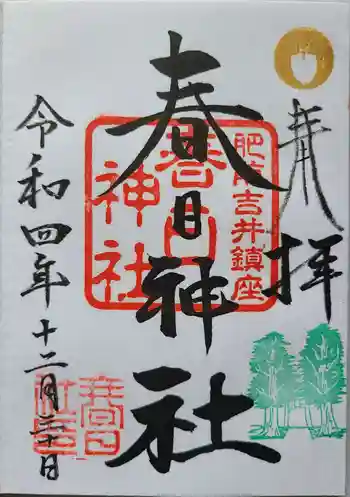 奉拝
春日神社
肥前吉井鎮座
春日
神社
令和四年十二月二十日